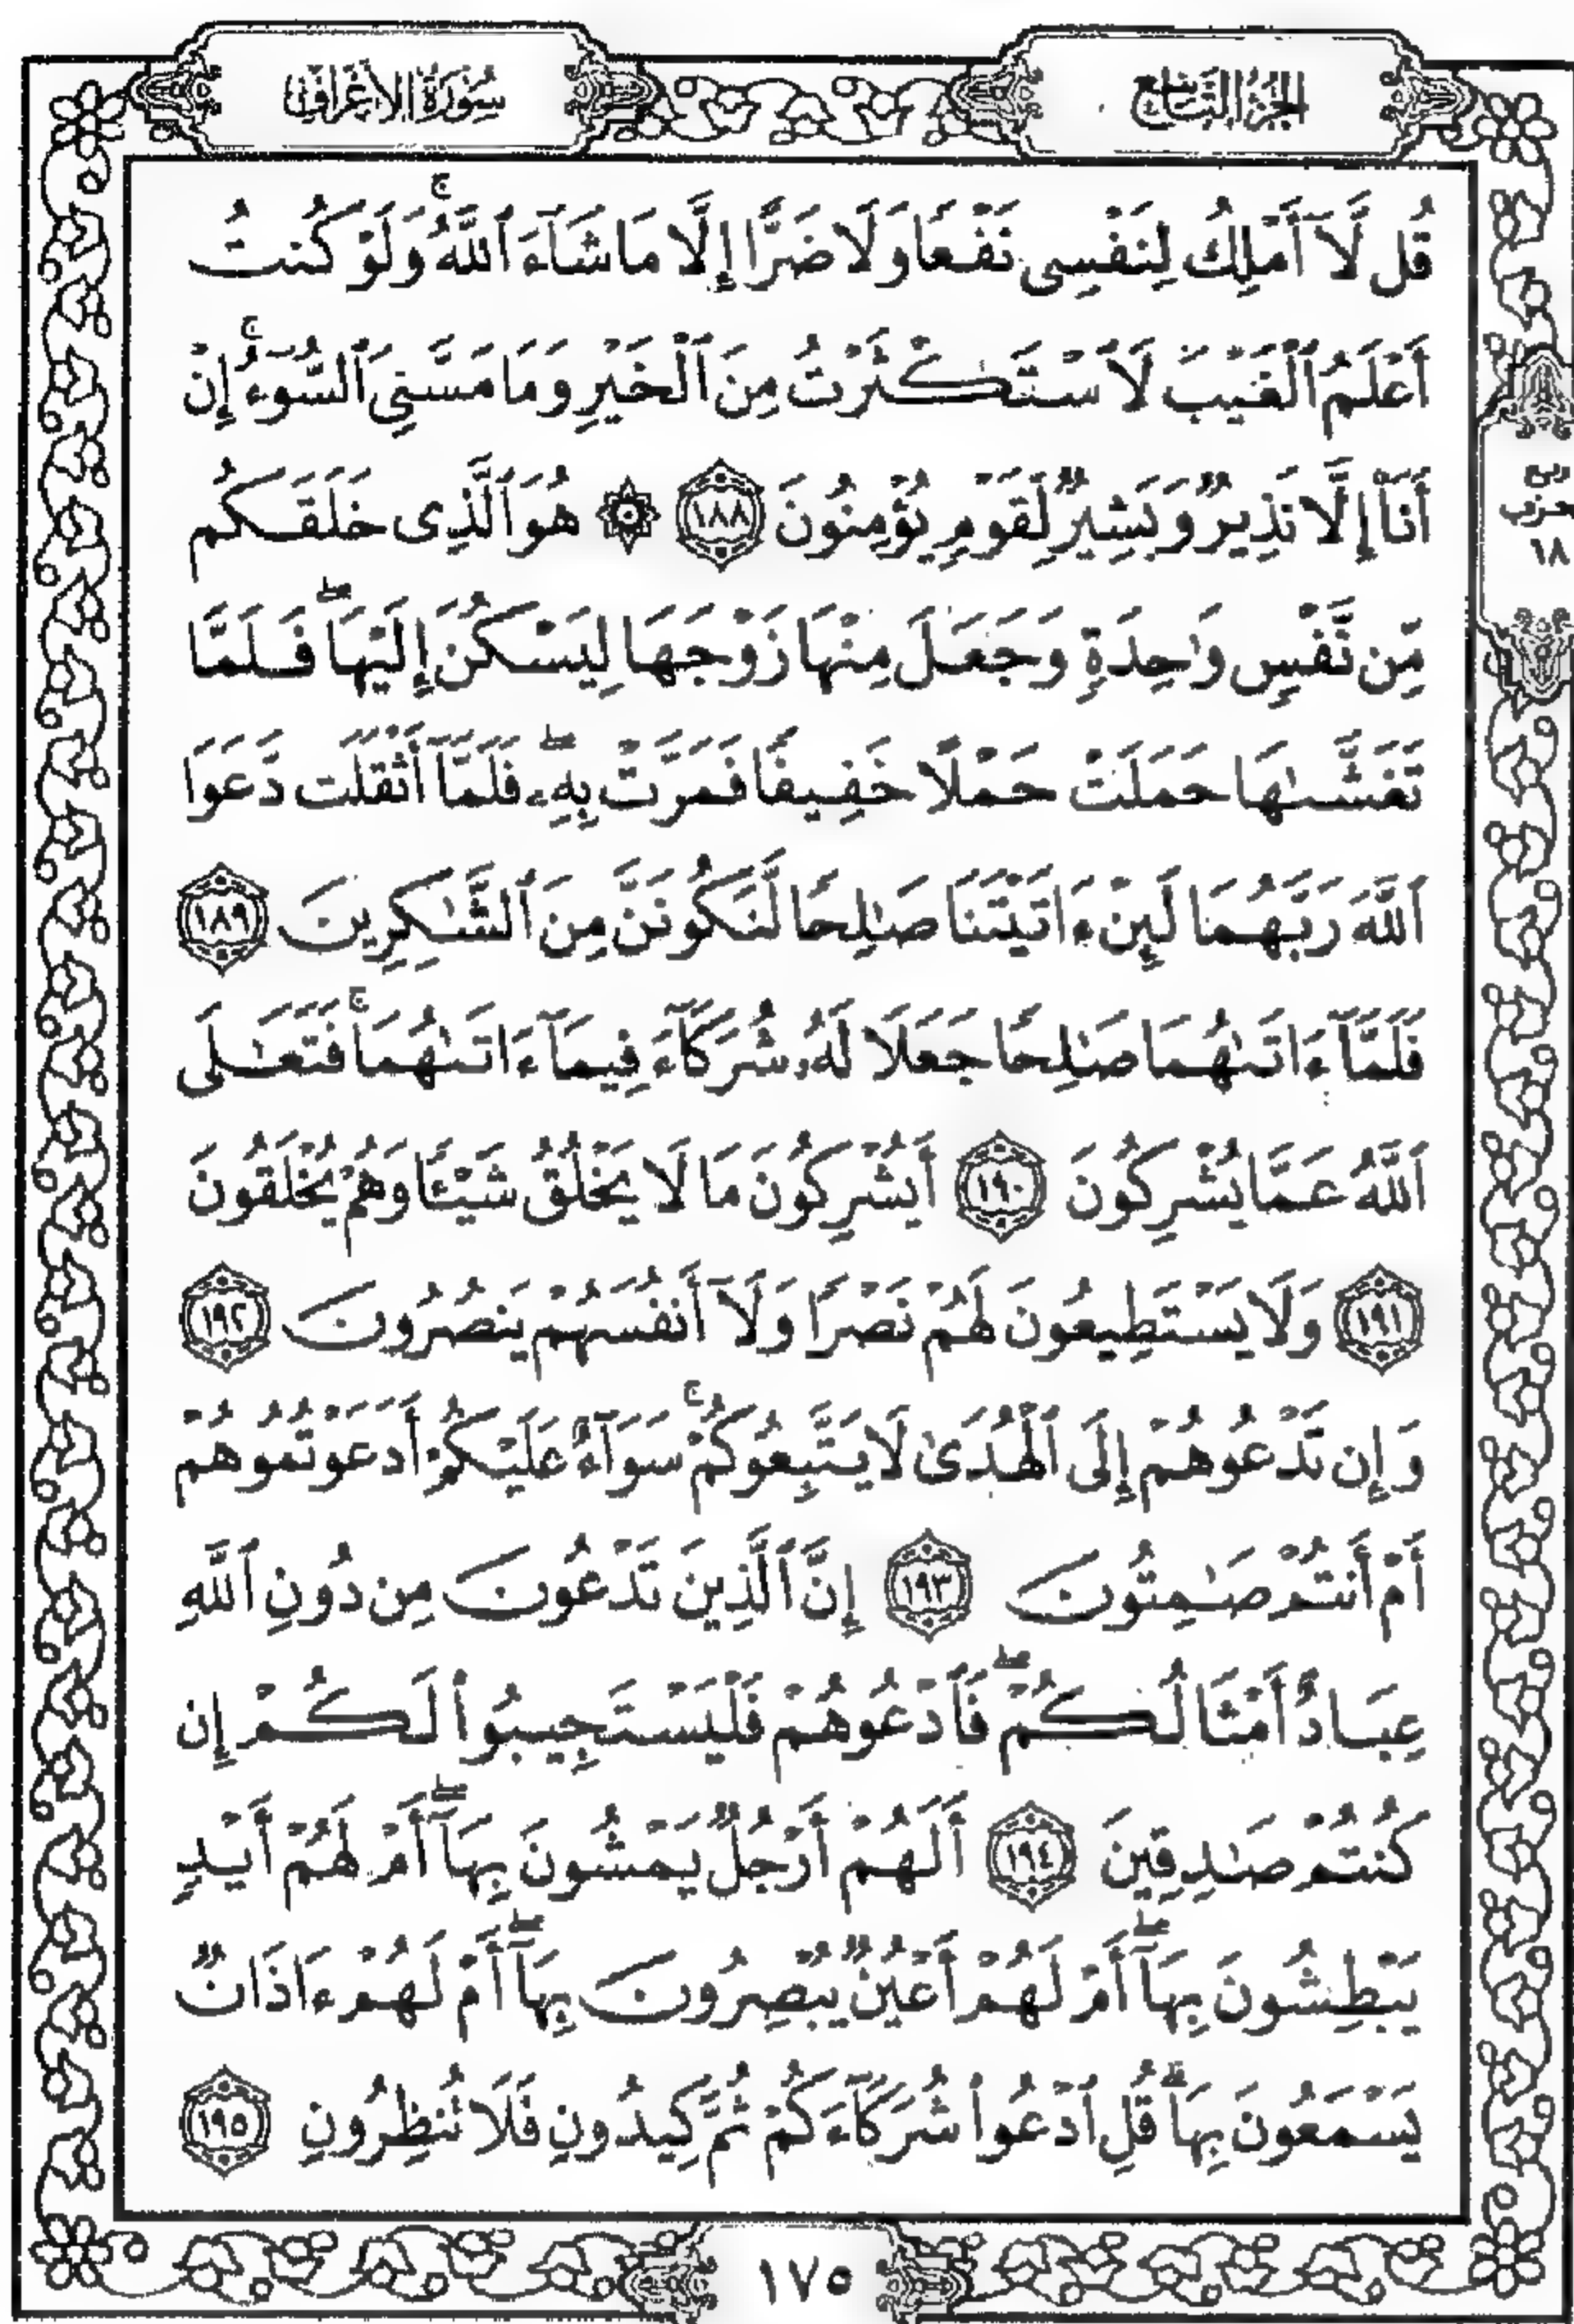 الجزء التاسع
سورة الأعراف
قُل لَّآ أَمْلِكُ لِنَفْسِى نَفْعًا وَلَا ضَرًّا إِلَّا مَا شَآءَ ٱللَّهُ ۚ وَلَوْ كُنتُ
أَعْلَمُ ٱلْغَيْبَ لَٱسْتَكْثَرْتُ مِنَ ٱلْخَيْرِ وَمَا مَسَّنِىَ ٱلسُّوٓءُ ۚ إِنْ
أَنَا۠ إِلَّا نَذِيرٌ وَبَشِيرٌ لِّقَوْمٍ يُؤْمِنُونَ ١٨٨ ۞ هُوَ ٱلَّذِى خَلَقَكُم
مِّن نَّفْسٍ وَٰحِدَةٍ وَجَعَلَ مِنْهَا زَوْجَهَا لِيَسْكُنَ إِلَيْهَا ۖ فَلَمَّا
تَغَشَّىٰهَا حَمَلَتْ حَمْلًا خَفِيفًا فَمَرَّتْ بِهِۦ ۖ فَلَمَّآ أَثْقَلَت دَّعَوَا
ٱللَّهَ رَبَّهُمَا لَئِنْ ءَاتَيْتَنَا صَٰلِحًا لَّنَكُونَنَّ مِنَ ٱلشَّٰكِرِينَ ١٨٩
فَلَمَّآ ءَاتَىٰهُمَا صَٰلِحًا جَعَلَا لَهُۥ شُرَكَآءَ فِيمَآ ءَاتَىٰهُمَا ۚ فَتَعَٰلَى
ٱللَّهُ عَمَّا يُشْرِكُونَ ١٩٠ أَيُشْرِكُونَ مَا لَا يَخْلُقُ شَيْـًٔا وَهُمْ يُخْلَقُونَ
١٩١ وَلَا يَسْتَطِيعُونَ لَهُمْ نَصْرًا وَلَآ أَنفُسَهُمْ يَنصُرُونَ ١٩٢
وَإِن تَدْعُوهُمْ إِلَى ٱلْهُدَىٰ لَا يَتَّبِعُوكُمْ ۚ سَوَآءٌ عَلَيْكُمْ أَدَعَوْتُمُوهُمْ
أَمْ أَنتُمْ صَٰمِتُونَ ١٩٣ إِنَّ ٱلَّذِينَ تَدْعُونَ مِن دُونِ ٱللَّهِ
عِبَادٌ أَمْثَالُكُمْ ۖ فَٱدْعُوهُمْ فَلْيَسْتَجِيبُوا۟ لَكُمْ إِن
كُنتُمْ صَٰدِقِينَ ١٩٤ أَلَهُمْ أَرْجُلٌ يَمْشُونَ بِهَآ ۖ أَمْ لَهُمْ أَيْدٍ
يَبْطِشُونَ بِهَآ ۖ أَمْ لَهُمْ أَعْيُنٌ يُبْصِرُونَ بِهَآ ۖ أَمْ لَهُمْ ءَاذَانٌ
يَسْمَعُونَ بِهَا ۗ قُلِ ٱدْعُوا۟ شُرَكَآءَكُمْ ثُمَّ كِيدُونِ فَلَا تُنظِرُونِ ١٩٥
ربع
حزب
١٨
١٧٥